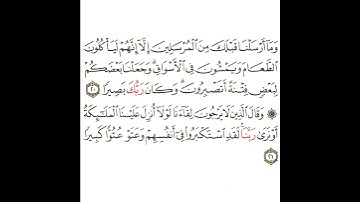 وَمَآ أَرْسَلْنَا قَبْلَكَ مِنَ ٱلْمُرْسَلِينَ إِلَّآ إِنَّهُمْ لَيَأْكُلُونَ
ٱلطَّعَامَ وَيَمْشُونَ فِى ٱلْأَسْوَاقِ ۗ وَجَعَلْنَا بَعْضَكُمْ
لِبَعْضٍ فِتْنَةً أَتَصْبِرُونَ ۗ وَكَانَ رَبُّكَ بَصِيرًا ٢٠
۞ وَقَالَ ٱلَّذِينَ لَا يَرْجُونَ لِقَآءَنَا لَوْلَآ أُنزِلَ عَلَيْنَا ٱلْمَلَـٰٓئِكَةُ
أَوْ نَرَىٰ رَبَّنَا ۗ لَقَدِ ٱسْتَكْبَرُوا۟ فِىٓ أَنفُسِهِمْ وَعَتَوْ عُتُوًّا كَبِيرًا
٢١